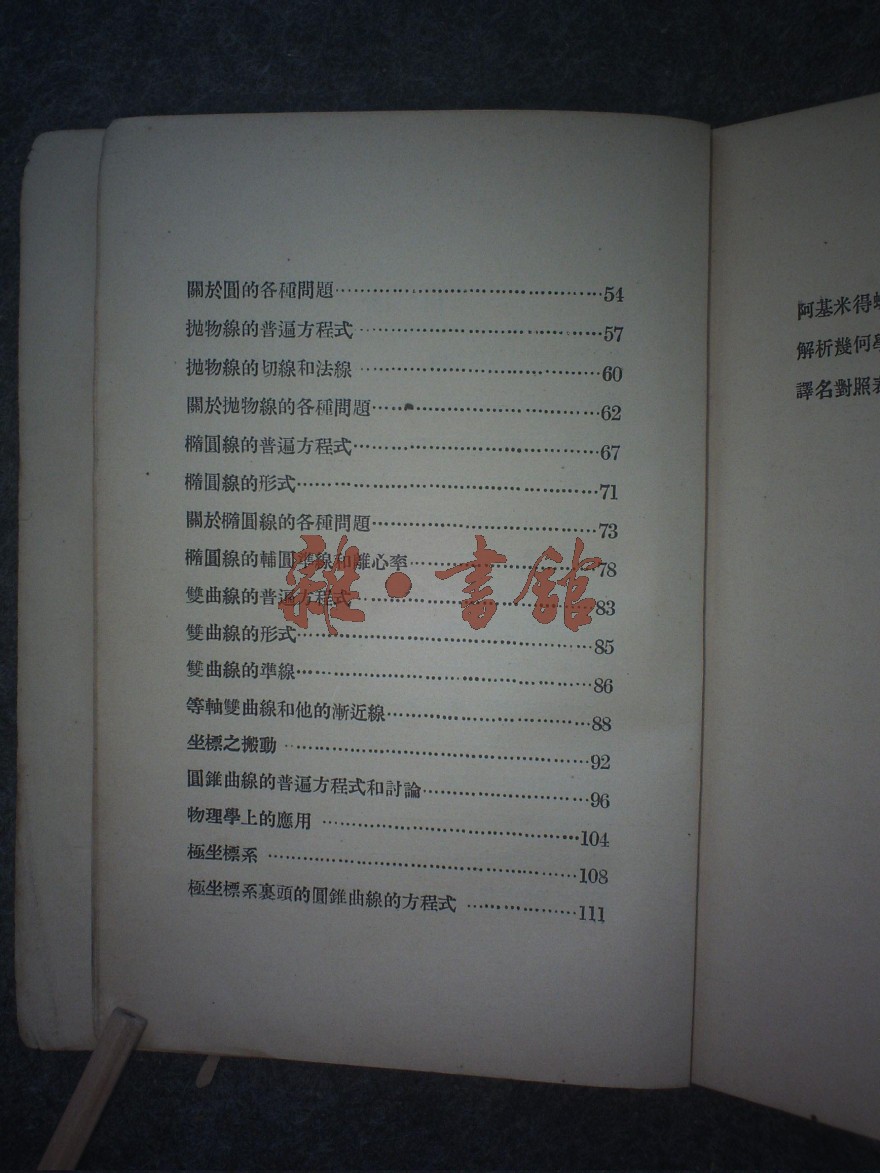 關於圓的各種問題……………………………………54
拋物線的普遍方程式…………………………………57
拋物線的切線和法線…………………………………60
關於拋物線的各種問題………………………………62
橢圓線的普遍方程式…………………………………67
橢圓線的形式…………………………………………71
關於橢圓線的各種問題………………………………73
橢圓線的輔圓準線和離心率…………………………78
雙曲線的普遍方程式…………………………………83
雙曲線的形式…………………………………………85
雙曲線的準線…………………………………………86
等軸雙曲線和他的漸近線……………………………88
坐標之搬動……………………………………………92
圓錐曲線的普遍方程式和討論………………………96
物理學上的應用………………………………………104
極坐標系………………………………………………108
極坐標系裏頭的圓錐曲線的方程式…………………111
雜·書館
阿基米得
解析幾何學
譯名對照表